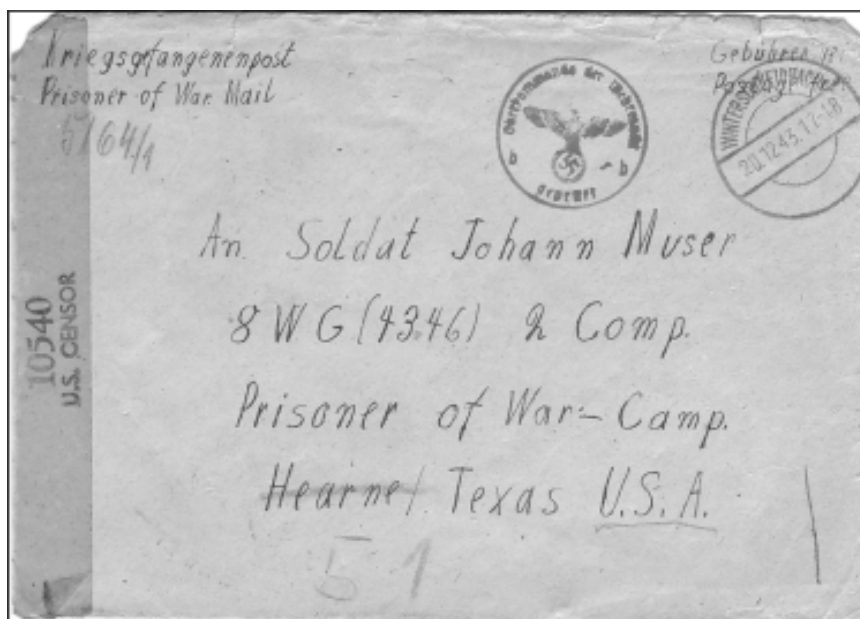 Kriegsgefangenenpost
Prisoner of War Mail
5164/1
Oberkommando der Wehrmacht
b b
geprüft
Gebühren
20.12.43.17-18
10540
U.S. CENSOR
An Soldat Johann Muser
8 W G (43.46) 2 Comp.
Prisoner of War-Camp.
Hearne/ Texas U.S.A.
51